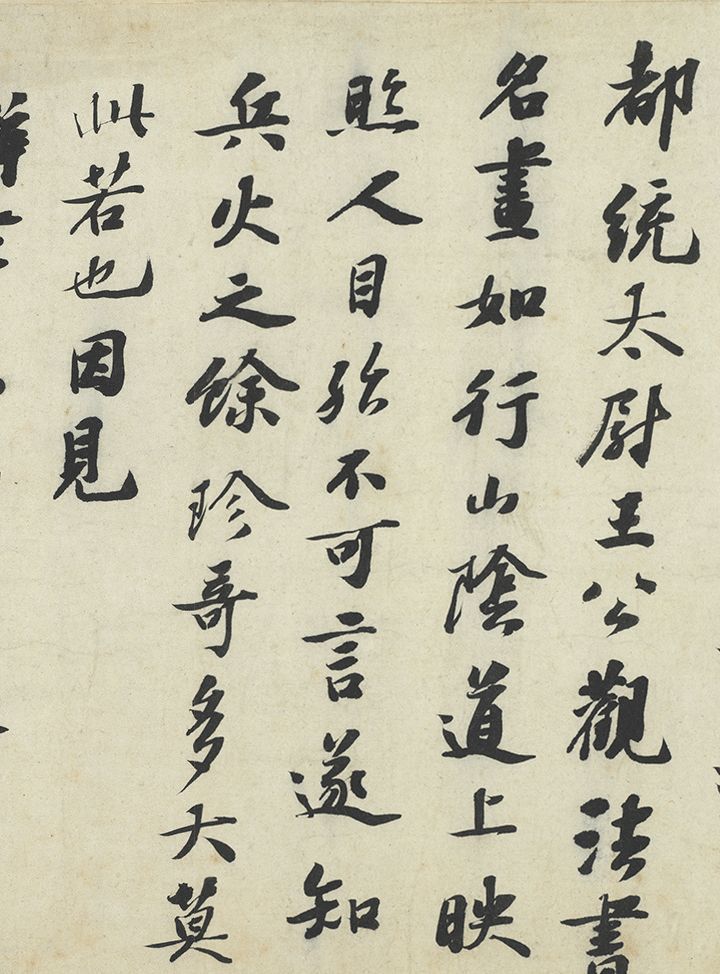 都統太尉王公觀法書
名畫如行山陰道上映
照人目殆不可言遂知
兵火之餘珍奇多大莫
此若也因見